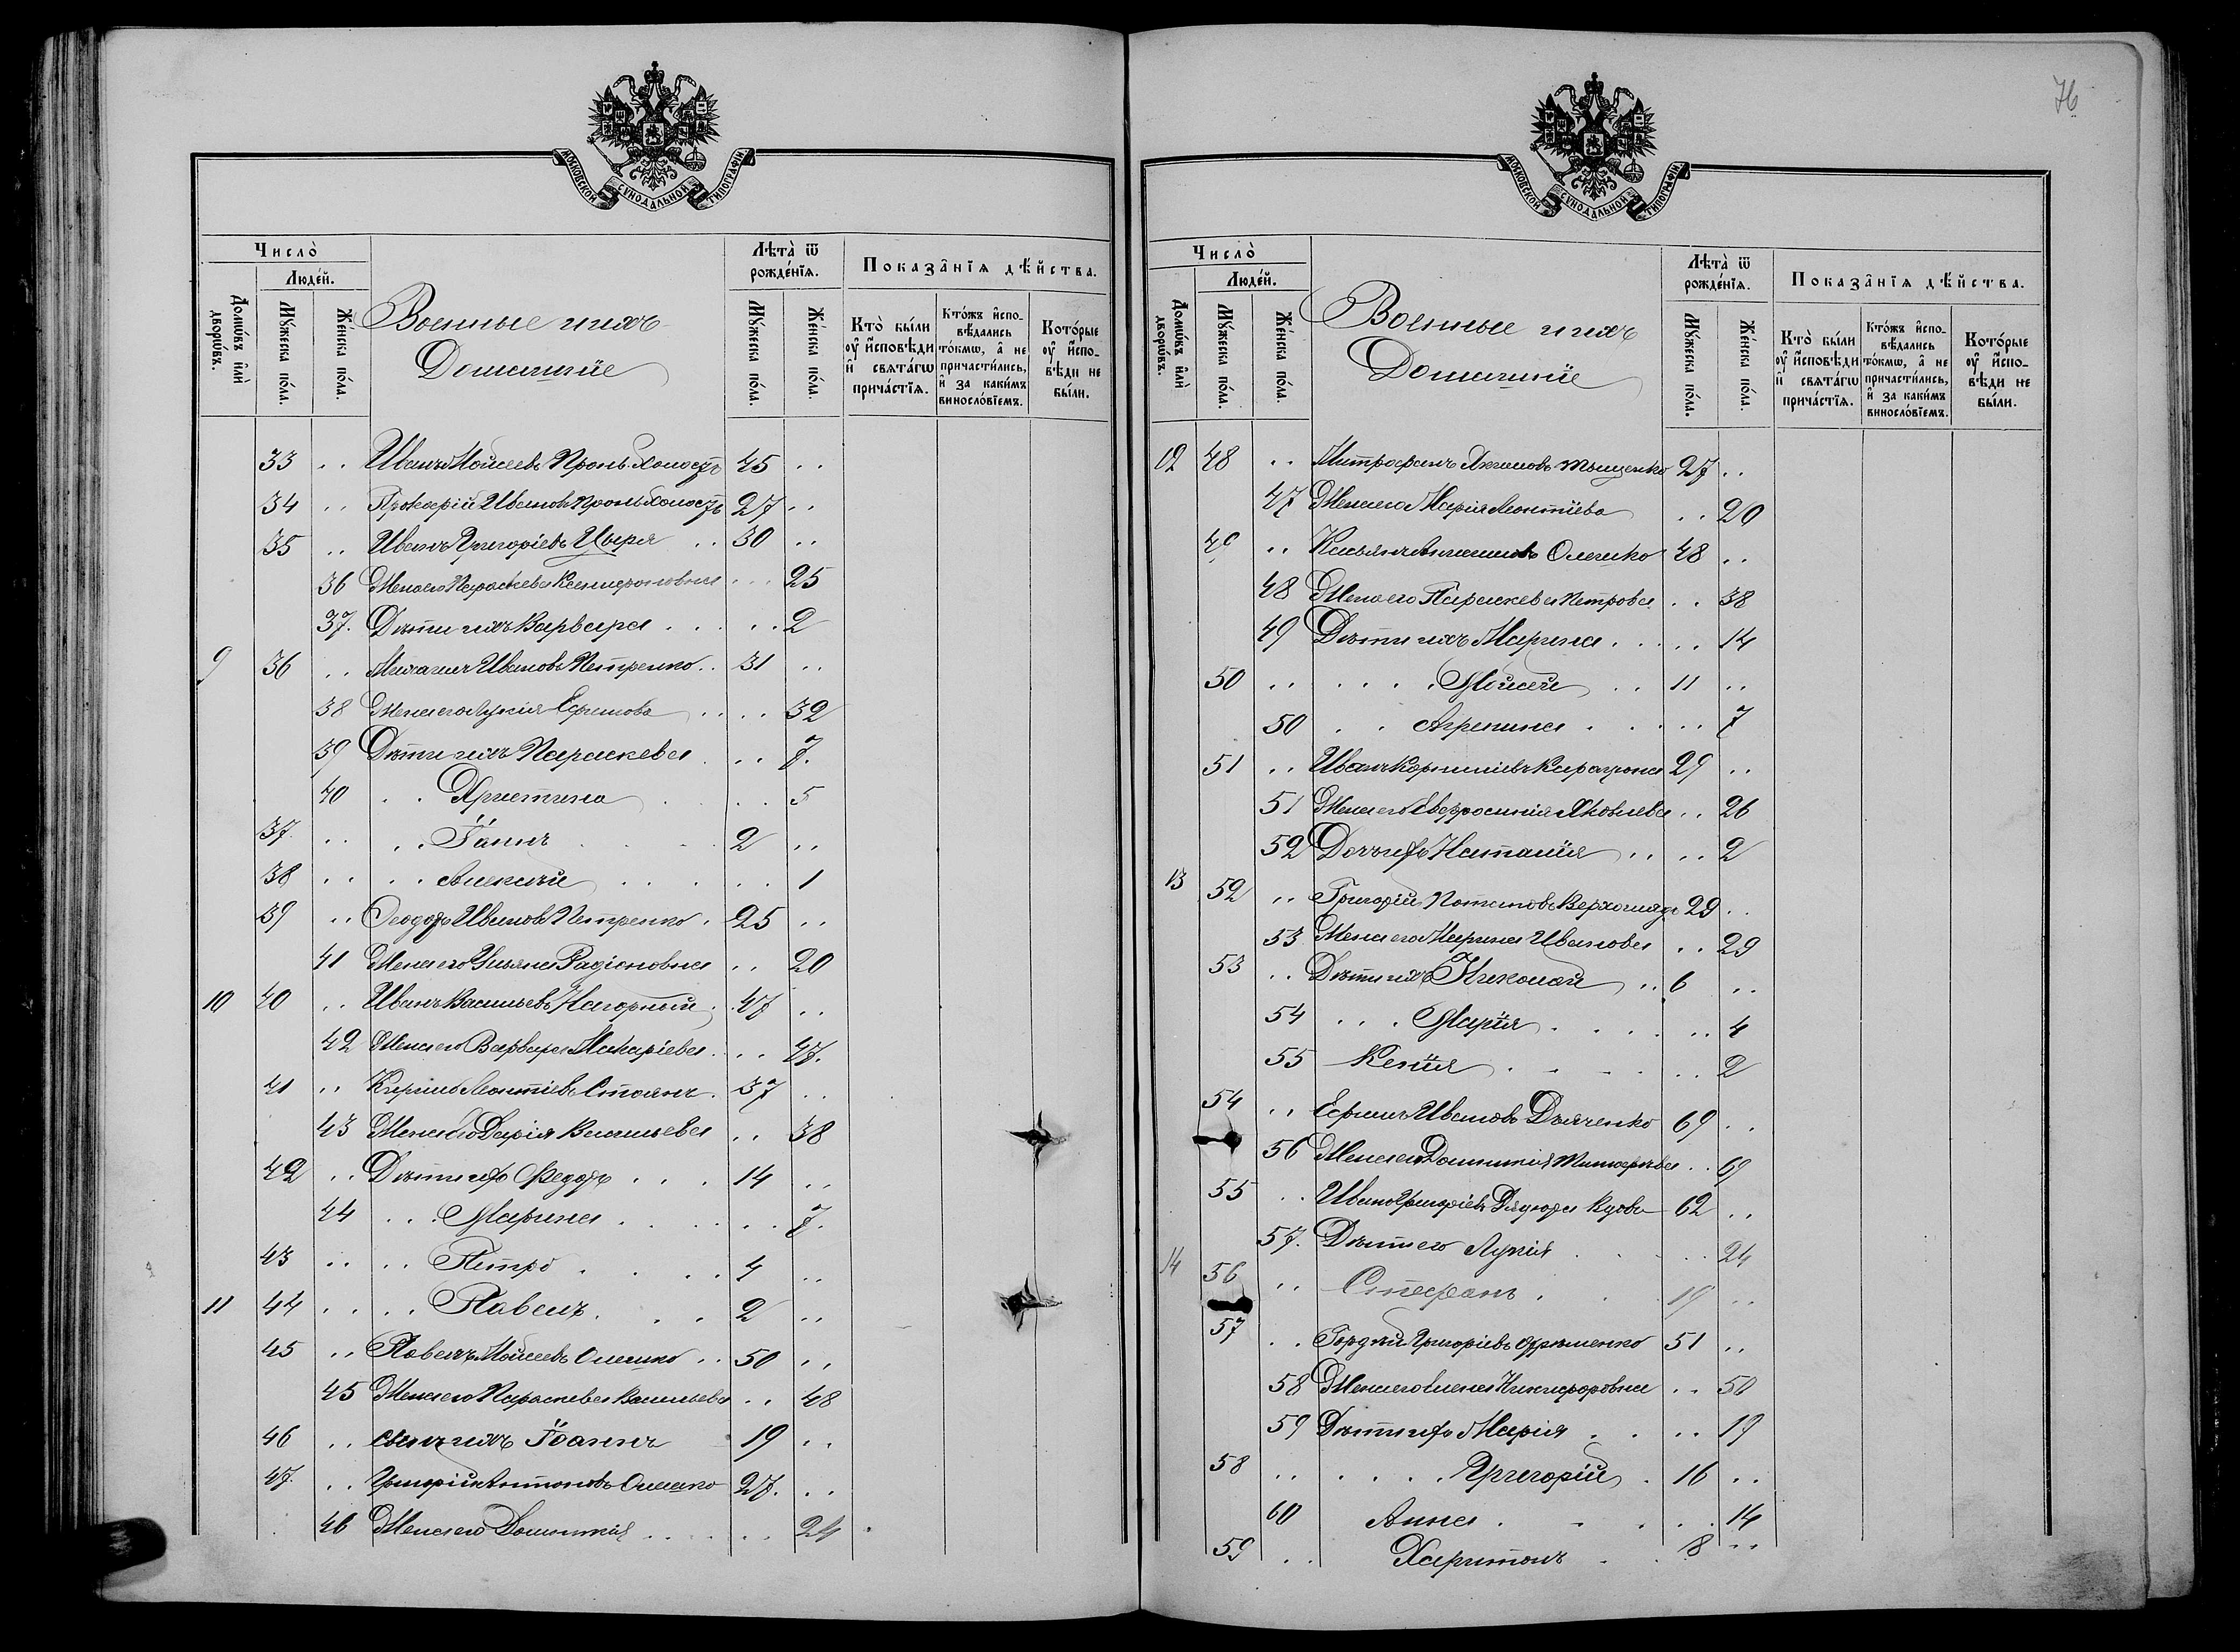 76
МОСКОВСКОЙ СѴНОДАЛЬНОЙ ТИПОГРАФІИ
Число̀
Людей.
Домѡвъ и҆лѝ дворѡвъ.
Мꙋжеска по́ла.
Же́нска по́ла.
Военные и ихъ
Домашніе
Лѣта̀ ѿ рожде́нїѧ.
Мꙋжеска по́ла.
Же́нска по́ла.
Показа̑нїѧ дѣ́йства.
Кто̀ были оу҆ и҆сповѣди и҆ свѧта́гѡ прича́стїѧ.
Кто́жъ и҆спо-вѣдались то́кмѡ, а҆ не причасти́лись, и҆ за каки́мъ винослόвїемъ.
Кото́рые оу҆ и҆спо-вѣди не были.
33 .. Иванъ Мойсеевъ 45 ..
34 .. Прокофій Ивановъ 27 ..
35 .. Иванъ Григоріевъ Цыра .. 30 ..
36 Жена его Параскева .. 25
37. Дѣти ихъ Варвара .. 2
9 36 .. Михаилъ Ивановъ Петренко .. 31 ..
38 Жена его Лукія Ефимова .. 32
39 Дѣти ихъ Параскева .. 7.
40 .. Христина .. 5
37. .. .. Іоаннъ 2 ..
38 .. .. Алексѣй .. 1
39 .. Ѳеодоръ Ивановъ Петренко . 25 ..
41 Жена его Ульяна Радіоновна .. 20
10 40 .. Иванъ Васильевъ Нагорный . 47 ..
42 Жена его Варвара Макаріева .. 47.
41 .. Кирило Леонтіевъ Стоянъ . 37 ..
43 Жена его Дарія Васильева .. 38
42 .. Дѣти ихъ Федоръ . . . 14 ..
44 .. Марина .. 7.
43 .. .. Петро . . . 4 ..
11 44 .. .. Павелъ . . . 2 ..
45 .. Павелъ Мойсеевъ Олешко .. 50 ..
45 Жена его Параскева Васильева .. 48
46 .. Сынъ ихъ Іоаннъ 19 ..
47. .. Григорій Антоновъ Олешко 27. ..
46 Жена его Домникія .. 24
Число̀
Людей.
Домѡвъ и҆лѝ дворѡвъ.
Мꙋжеска по́ла.
Же́нска по́ла.
Военные и ихъ
Домашніе
Лѣта̀ ѿ рожде́нїѧ.
Мꙋжеска по́ла.
Же́нска по́ла.
Показа̑нїѧ дѣ́йства.
Кто̀ были оу҆ и҆сповѣди и҆ свѧта́гѡ прича́стїѧ.
Кто́жъ и҆спо-вѣдались то́кмѡ, а҆ не причасти́лись, и҆ за каки́мъ винослόвїемъ.
Кото́рые оу҆ и҆спо-вѣди не были.
12 48 .. Митрофанъ Тыщенко 27 ..
47 Жена его Марія Леонтіева .. 20
49 .. Касьянъ Олешко 48 ..
48 Жена его Параскева Петрова .. 38
49 Дѣти ихъ Марина . . .. 14
50 .. .. Мойсей .. 11 ..
50 .. Агрепина .. 7
51 .. Иванъ Корниліевъ 29 ..
51 Жена его Евфросинія Яковлева .. 26
52 Дочь ихъ Наталія .. 2
13 52 .. Григорій Потаповъ 29 ..
53 Жена его Марина Иванова .. 29
53 .. Дѣти ихъ Николай .. 6 ..
54 .. Марія .. 4
55 Ксенія .. 2
54 .. Ефимъ Ивановъ Дьяченко 69 ..
56 Жена его Домникія Тимофѣева .. 69
55 .. Иванъ Григоріевъ вдовъ 62 ..
57. Дѣти его Лукія .. 24
14 56 .. Стефанъ . . 19 ..
57 .. Гордѣй Григоріевъ 51 ..
58 Жена его Елена Никифоровна .. 50
59 Дѣти ихъ Марія .. 19
58 .. .. Григорій . 16 ..
60 Анна . .. 14
59 .. Харитонъ . 8 ..